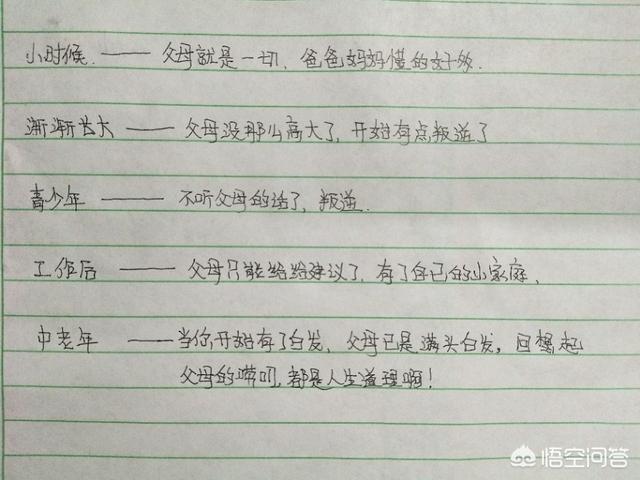 小时候 —— 父母就是一切、爸爸妈妈懂的好多.
渐渐长大 —— 父母没那么高大了,开始有点叛逆了
青少年 —— 不听父母的话了,叛逆.
工作后 —— 父母只能给给建议了,有了自己的小家庭、
中老年 ——当你开始有了白发,父母已是满头白发,回想起
父母的唠叨,都是人生道理啊!
悟空问答